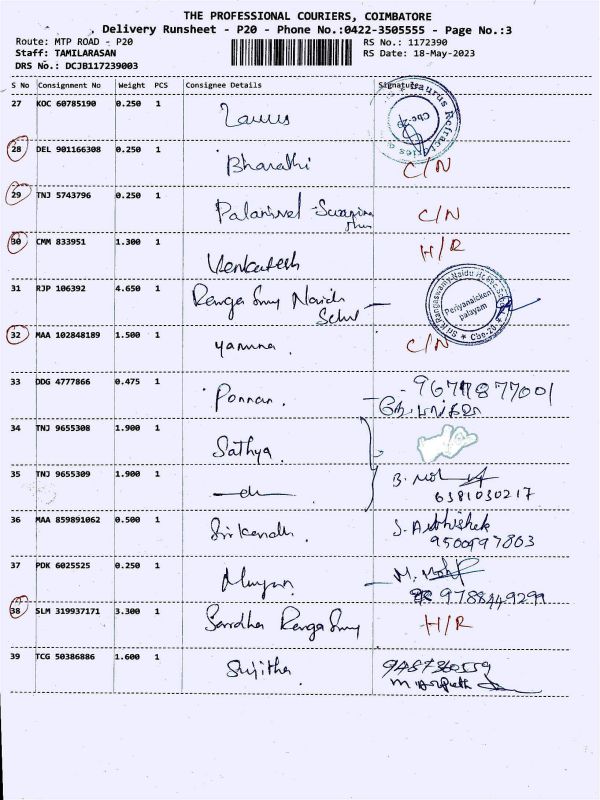 THE PROFESSIONAL COURIERS, COIMBATORE
Delivery Runsheet - P20 - Phone No.:0422-3505555 - Page No.:3
Route: MTP ROAD - P20 RS No.: 1172390
Staff: TAMILARASAN RS Date: 18-May-2023
DRS No.: DCJB117239003
S No Consignment No Weight PCS Consignee Details Signature
27 KOC 60785190 0.250 1
28 DEL 901166308 0.250 1 Bharathi C/N
29 TNJ 5743796 0.250 1 Palanivel C/N
30 CMM 833951 1.300 1 Venkatesh H/R
31 RJP 106392 4.650 1 Ranga Samy Naidu
Periyanaicken
palayam
32 MAA 102848189 1.500 1 yamuna C/N
33 DDG 4777866 0.475 1 Ponnan
34 TNJ 9655308 1.900 1 Sathya
35 TNJ 9655309 1.900 1 do
6381030217
36 MAA 859891062 0.500 1 Srikandh S. Abhishek
9500997803
37 PDK 6025525 0.250 1 Murugan
9788449299
38 SLM 319937171 3.300 1 Ranga Samy H/R
39 TCG 50386886 1.600 1 Sujitha